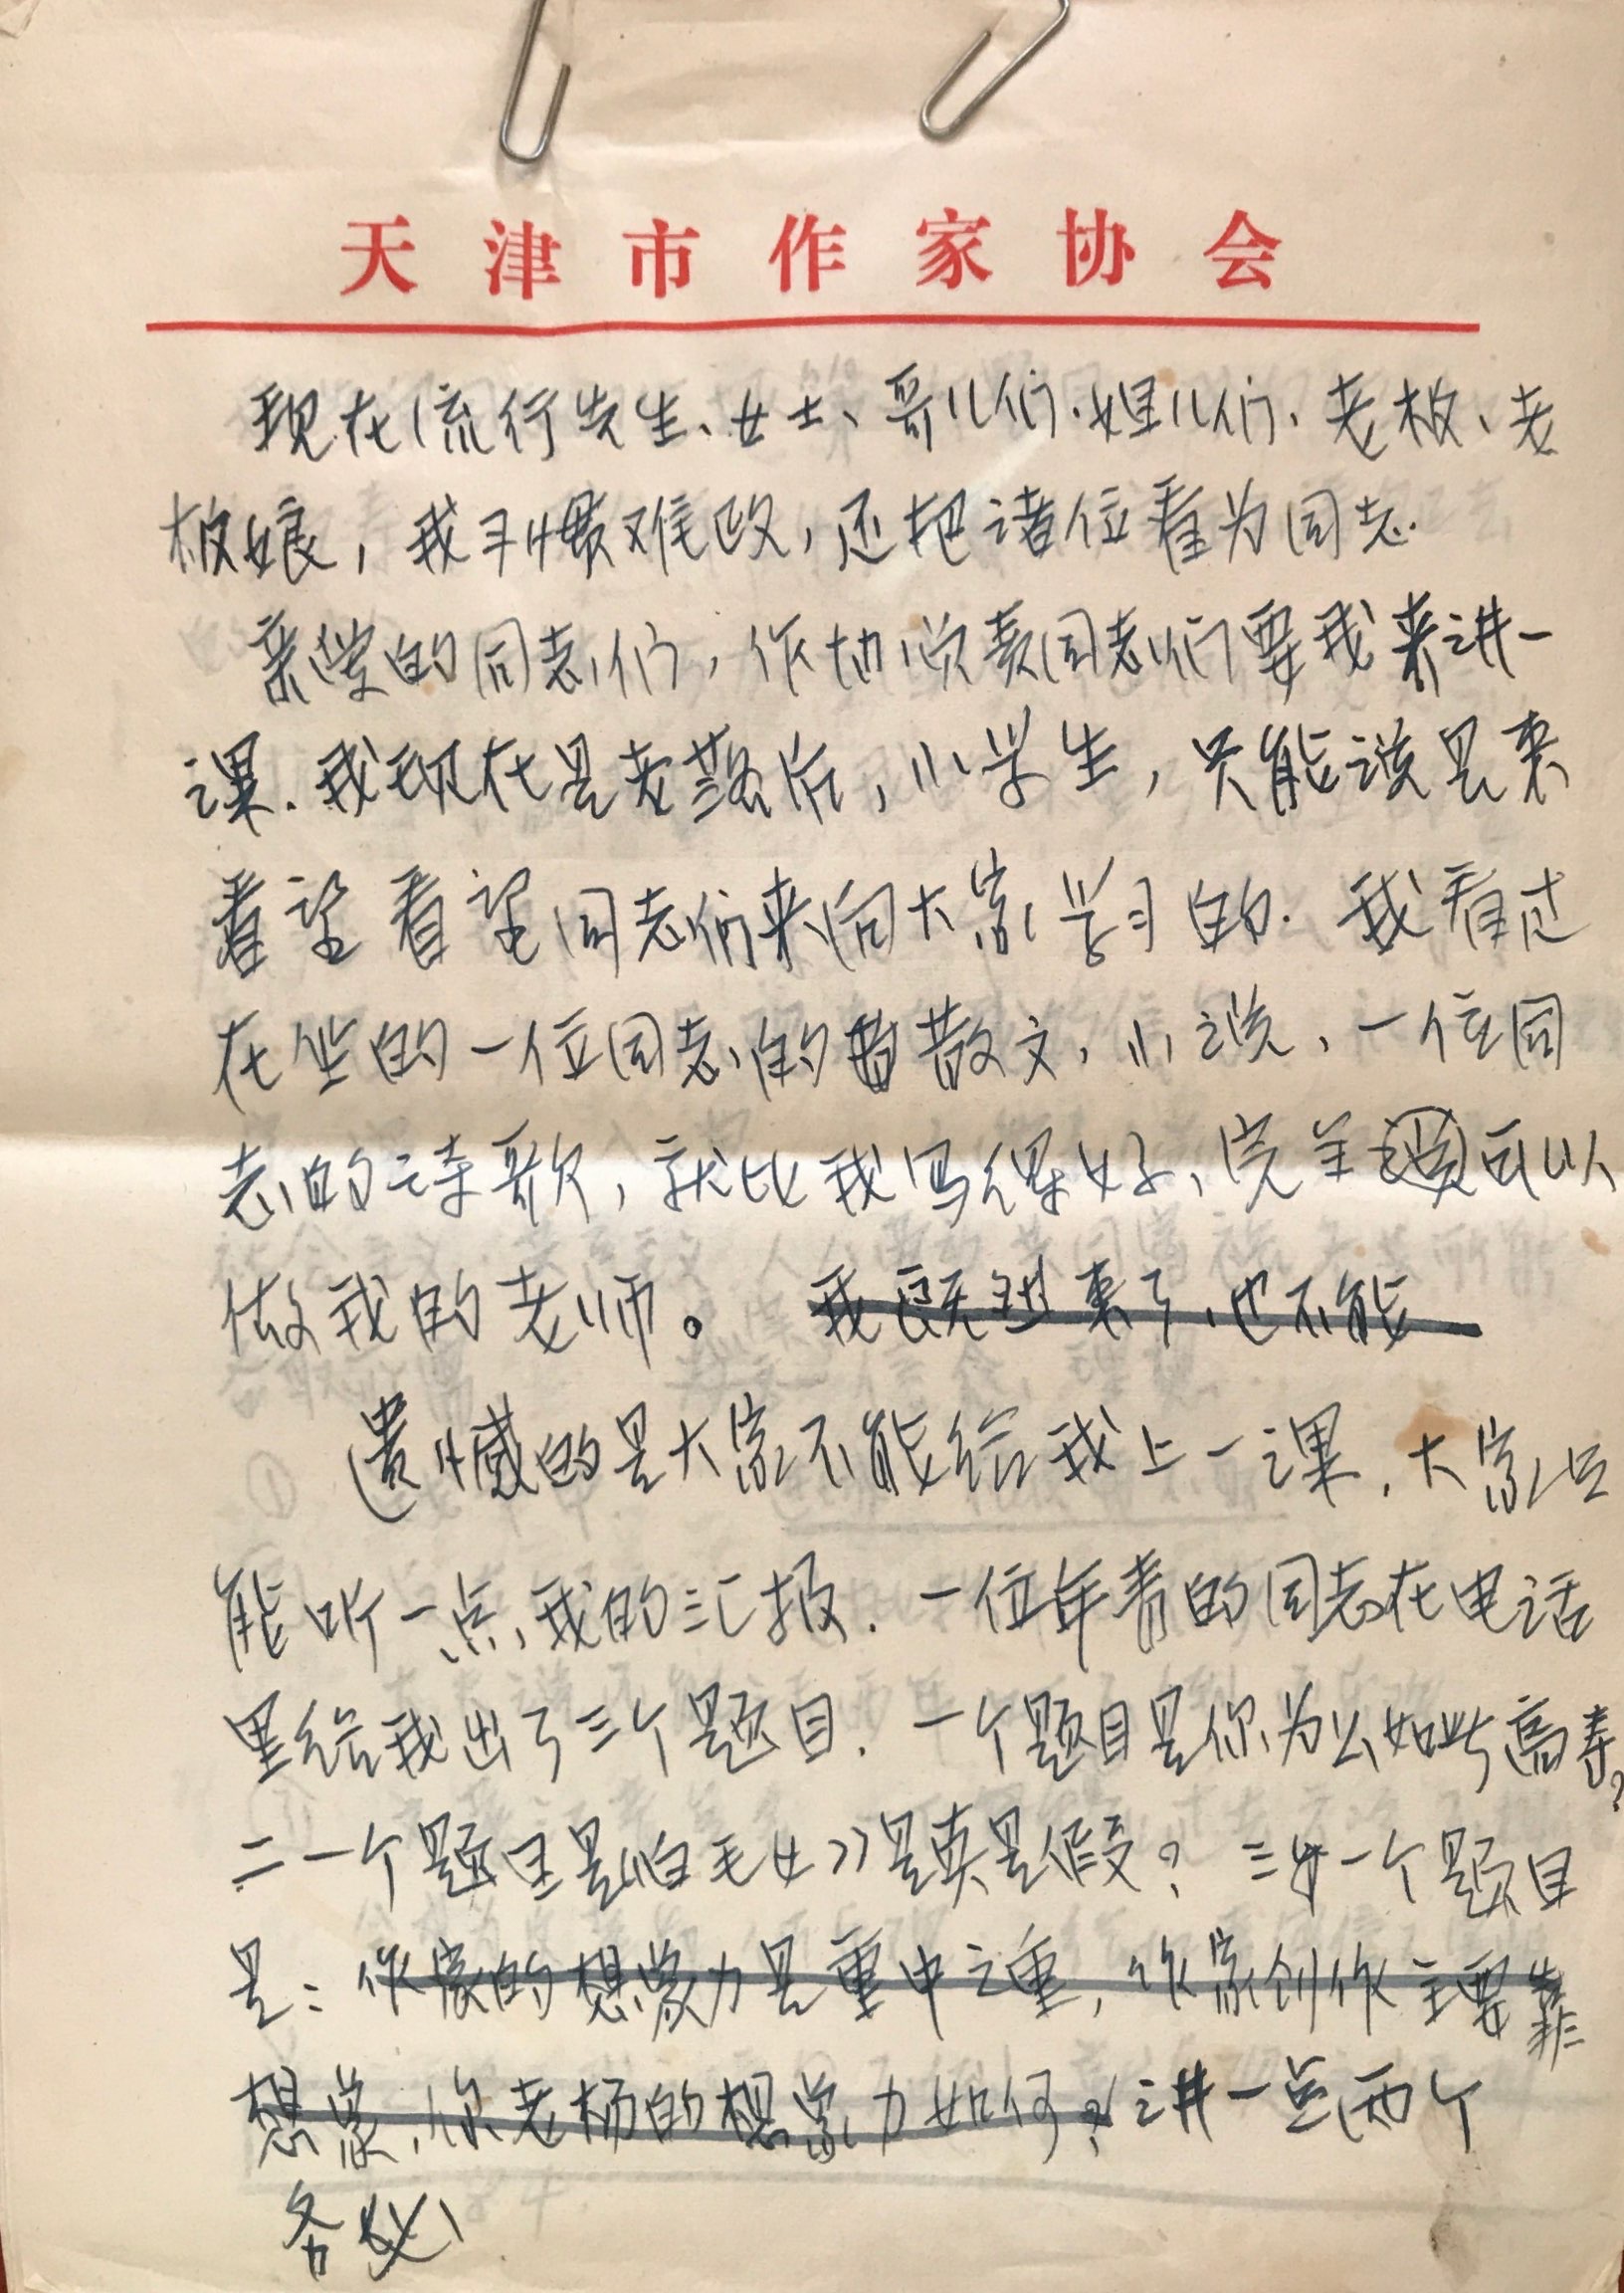 天津市作家协会
现在流行先生、女士、哥儿们、姐儿们、老板、老
板娘，我习惯难改，还把诸位看为同志.
亲爱的同志们，作协负责同志们要我来讲一
课.我现在是老落后，小学生，只能说是来
看望看望同志们来向大家学习的.我看过
在坐的一位同志的散文，小说、一位同
志的诗歌，就比我写得好，完全可以
做我的老师。 我既然来了，也不能
遗憾的是大家不能给我上一课，大家只
能听一点我的汇报.一位年青的同志在电话
里给我出了三个题目.一个题目是你为么如此高寿？
二一个题目是《白毛女》是真是假？三一个题目
是：作家的想象力是重中之重，作家创作主要靠
想象，你老杨的想象力如何？讲一点两个
务必